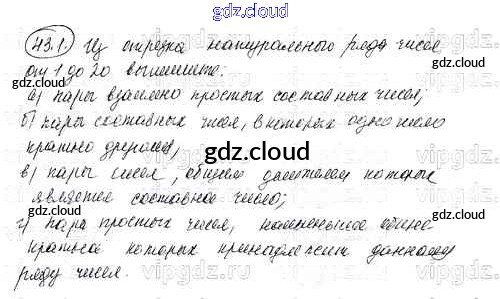 gdz.cloud
43.1. Из отрезка натурального ряда чисел
от 1 до 20 выпишите:
а) пары взаимно простых составных чисел;
б) пары составных чисел, в которых одно число
кратно другому;
gdz.cloud
в) пары чисел, общим делителем которых
является составное число;
г) пара простых чисел, наименьшее общее
кратное которых принадлежит данному
ряду чисел.
gdz.cloud